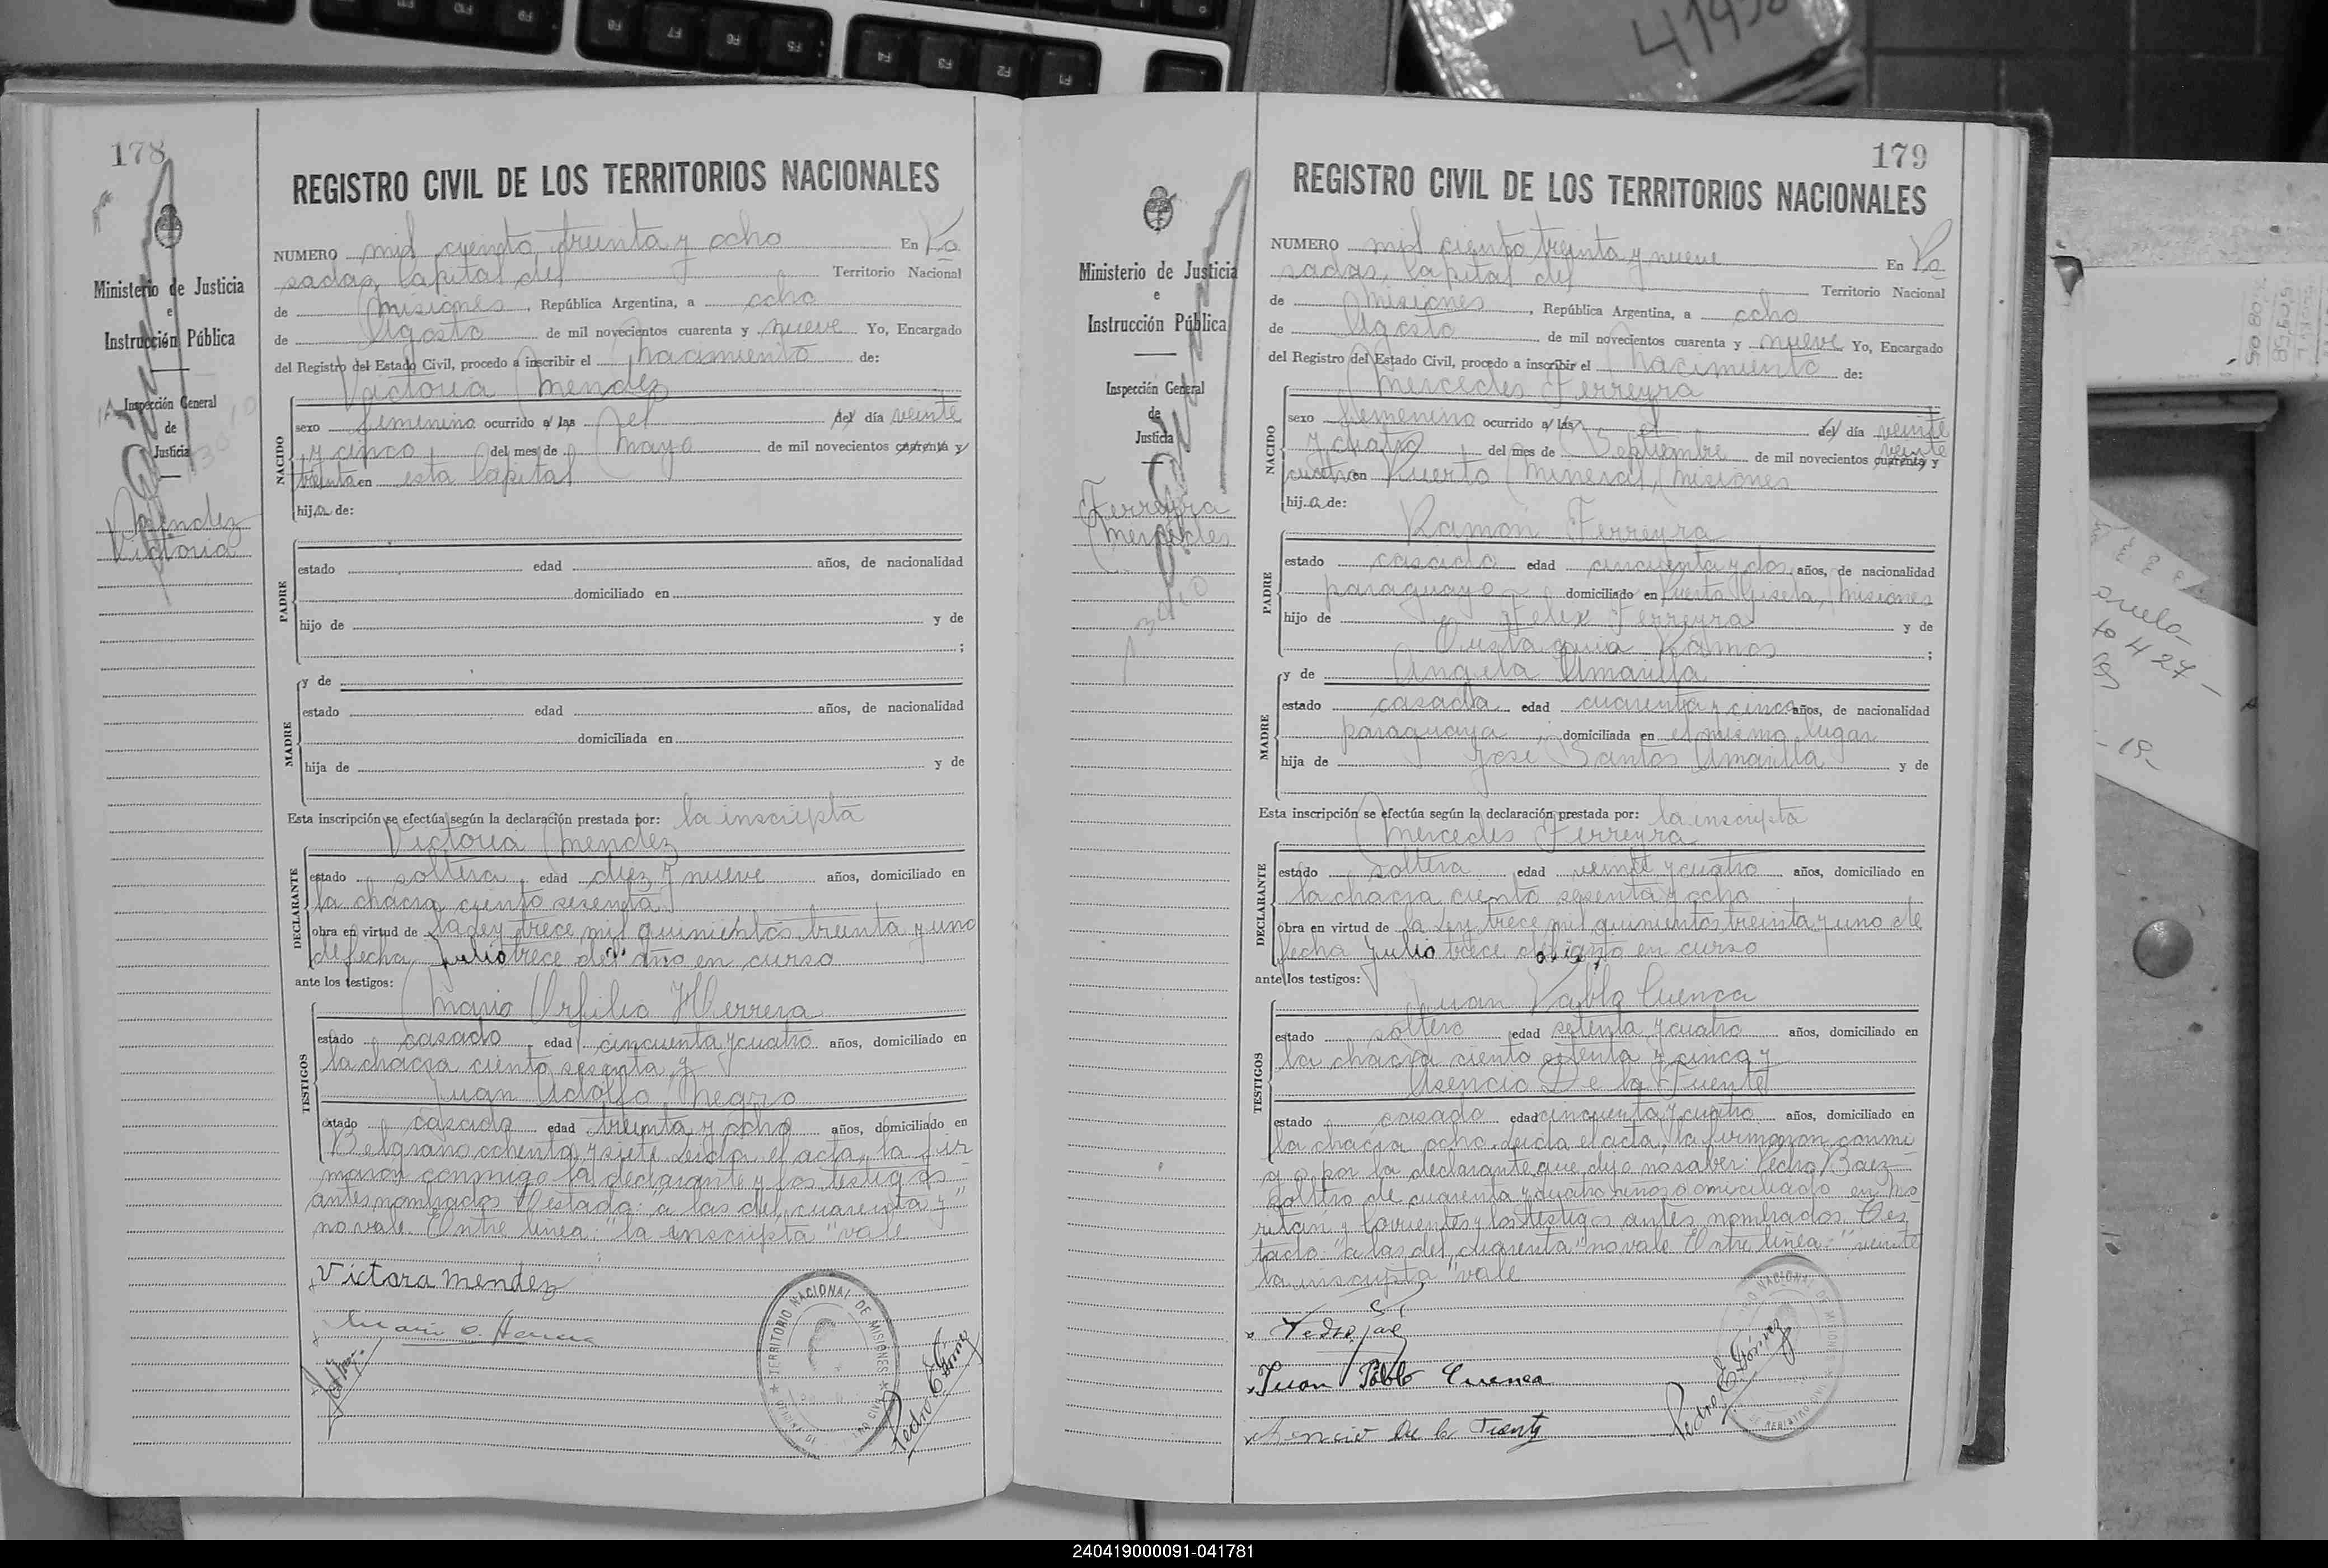 178
Ministerio de Justicia
e
Instrucción Pública
Inspección General
de
Justicia
Mendez
Victoria
REGISTRO CIVIL DE LOS TERRITORIOS NACIONALES
NUMERO mil ciento treinta y ocho En Po
sadas, Capital del Territorio Nacional
de Misiones, República Argentina, a ocho
de Agosto de mil novecientos cuarenta y nueve Yo, Encargado
del Registro del Estado Civil, procedo a inscribir el Nacimiento de:
Victoria Mendez
NACIDO
sexo femenino ocurrido a las el del día veinte
y cinco del mes de Mayo de mil novecientos cuarenta y
treinta en esta Capital
hija de:
PADRE
estado edad años, de nacionalidad
domiciliado en
hijo de y de
;
MADRE
y de
estado edad años, de nacionalidad
domiciliada en
hija de y de
Esta inscripción se efectúa según la declaración prestada por: la inscripta
Victoria Mendez
DECLARANTE
estado soltera edad diez y nueve años, domiciliado en
la chacra ciento sesenta
obra en virtud de la Ley trece mil quinientos treinta y uno
de fecha Julio trece del año en curso
ante los testigos:
Mario Orfilio Herrera
TESTIGOS
estado casado edad cincuenta y cuatro años, domiciliado en
la chacra ciento sesenta y
Juan Adolfo Negro
estado casado edad treinta y ocho años, domiciliado en
Belgrano ochenta y siete. Leída el acta, la fir
maron conmigo la declarante y los testigos
antes nombrados. Testado: "a las del, cuarenta y"
no vale. Entre linea: "la inscripta" vale
Victora Mendez
Mario O. Herrera
TERRITORIO NACIONAL DE MISIONES
Pedro E. Gómez
179
Ministerio de Justicia
e
Instrucción Pública
Inspección General
de
Justicia
Ferreyra
Mercedes
REGISTRO CIVIL DE LOS TERRITORIOS NACIONALES
NUMERO mil ciento treinta y nueve En Po
sadas, Capital del Territorio Nacional
de Misiones, República Argentina, a ocho
de Agosto de mil novecientos cuarenta y nueve Yo, Encargado
del Registro del Estado Civil, procedo a inscribir el Nacimiento de:
Mercedes Ferreyra
NACIDO
sexo femenino ocurrido a las el del día veinte
y cuatro del mes de Septiembre de mil novecientos cuarenta y veinte
cuatro en Puerto Mineral, Misiones
hija de:
Ramón Ferreyra
PADRE
estado casado edad cincuenta y dos años, de nacionalidad
paraguayo domiciliado en Puerto Gisela, Misiones
hijo de Felix Ferreyra y de
Eustaquia Ramos ;
MADRE
y de Angela Amarilla
estado casada edad cuarenta y cinco años, de nacionalidad
paraguaya domiciliada en el mismo lugar
hija de José Santos Amarilla y de
Esta inscripción se efectúa según la declaración prestada por: la inscripta
Mercedes Ferreyra
DECLARANTE
estado soltera edad veinte y cuatro años, domiciliado en
la chacra ciento sesenta y ocho
obra en virtud de la Ley trece mil quinientos treinta y uno de
fecha Julio trece del año en curso
ante los testigos:
Juan Pablo Cuenca
TESTIGOS
estado soltero edad setenta y cuatro años, domiciliado en
la chacra ciento setenta y cinco y
Asencio De la Fuente
estado casado edad cincuenta y cuatro años, domiciliado en
la chacra ocho. Leída el acta, la firmaron conmi
go por la declarante que dijo no saber: Pedro Baez
soltero de cuarenta y cuatro años domiciliado en Mo
ritan y Corrientes y los testigos antes nombrados. Tes
tado: "a las del, cuarenta" no vale. Entre linea: "veinte
la inscripta" vale
Juan Pablo Cuenca
Asencio De la Fuente
Pedro E. Gómez
240419000091-041781